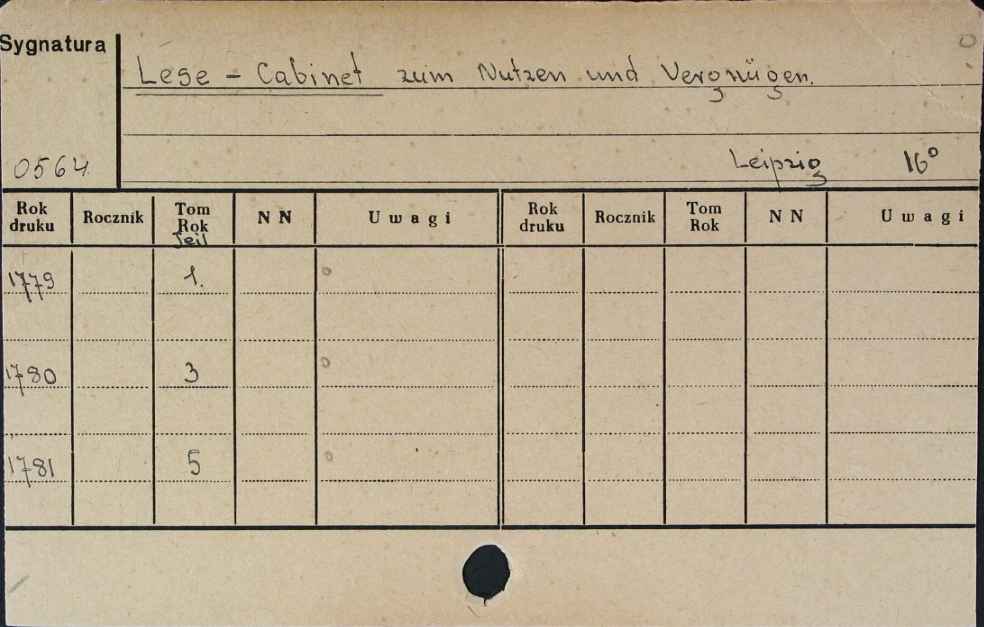 Sygnatura
Lese - Cabinet zum Nutzen und Vergnügen.
0564
Leipzig 16°
Rok druku Rocznik Tom Rok Teil NN Uwagi Rok druku Rocznik Tom Rok NN Uwagi
1779 1. o
1780 3 o
1781 5 o